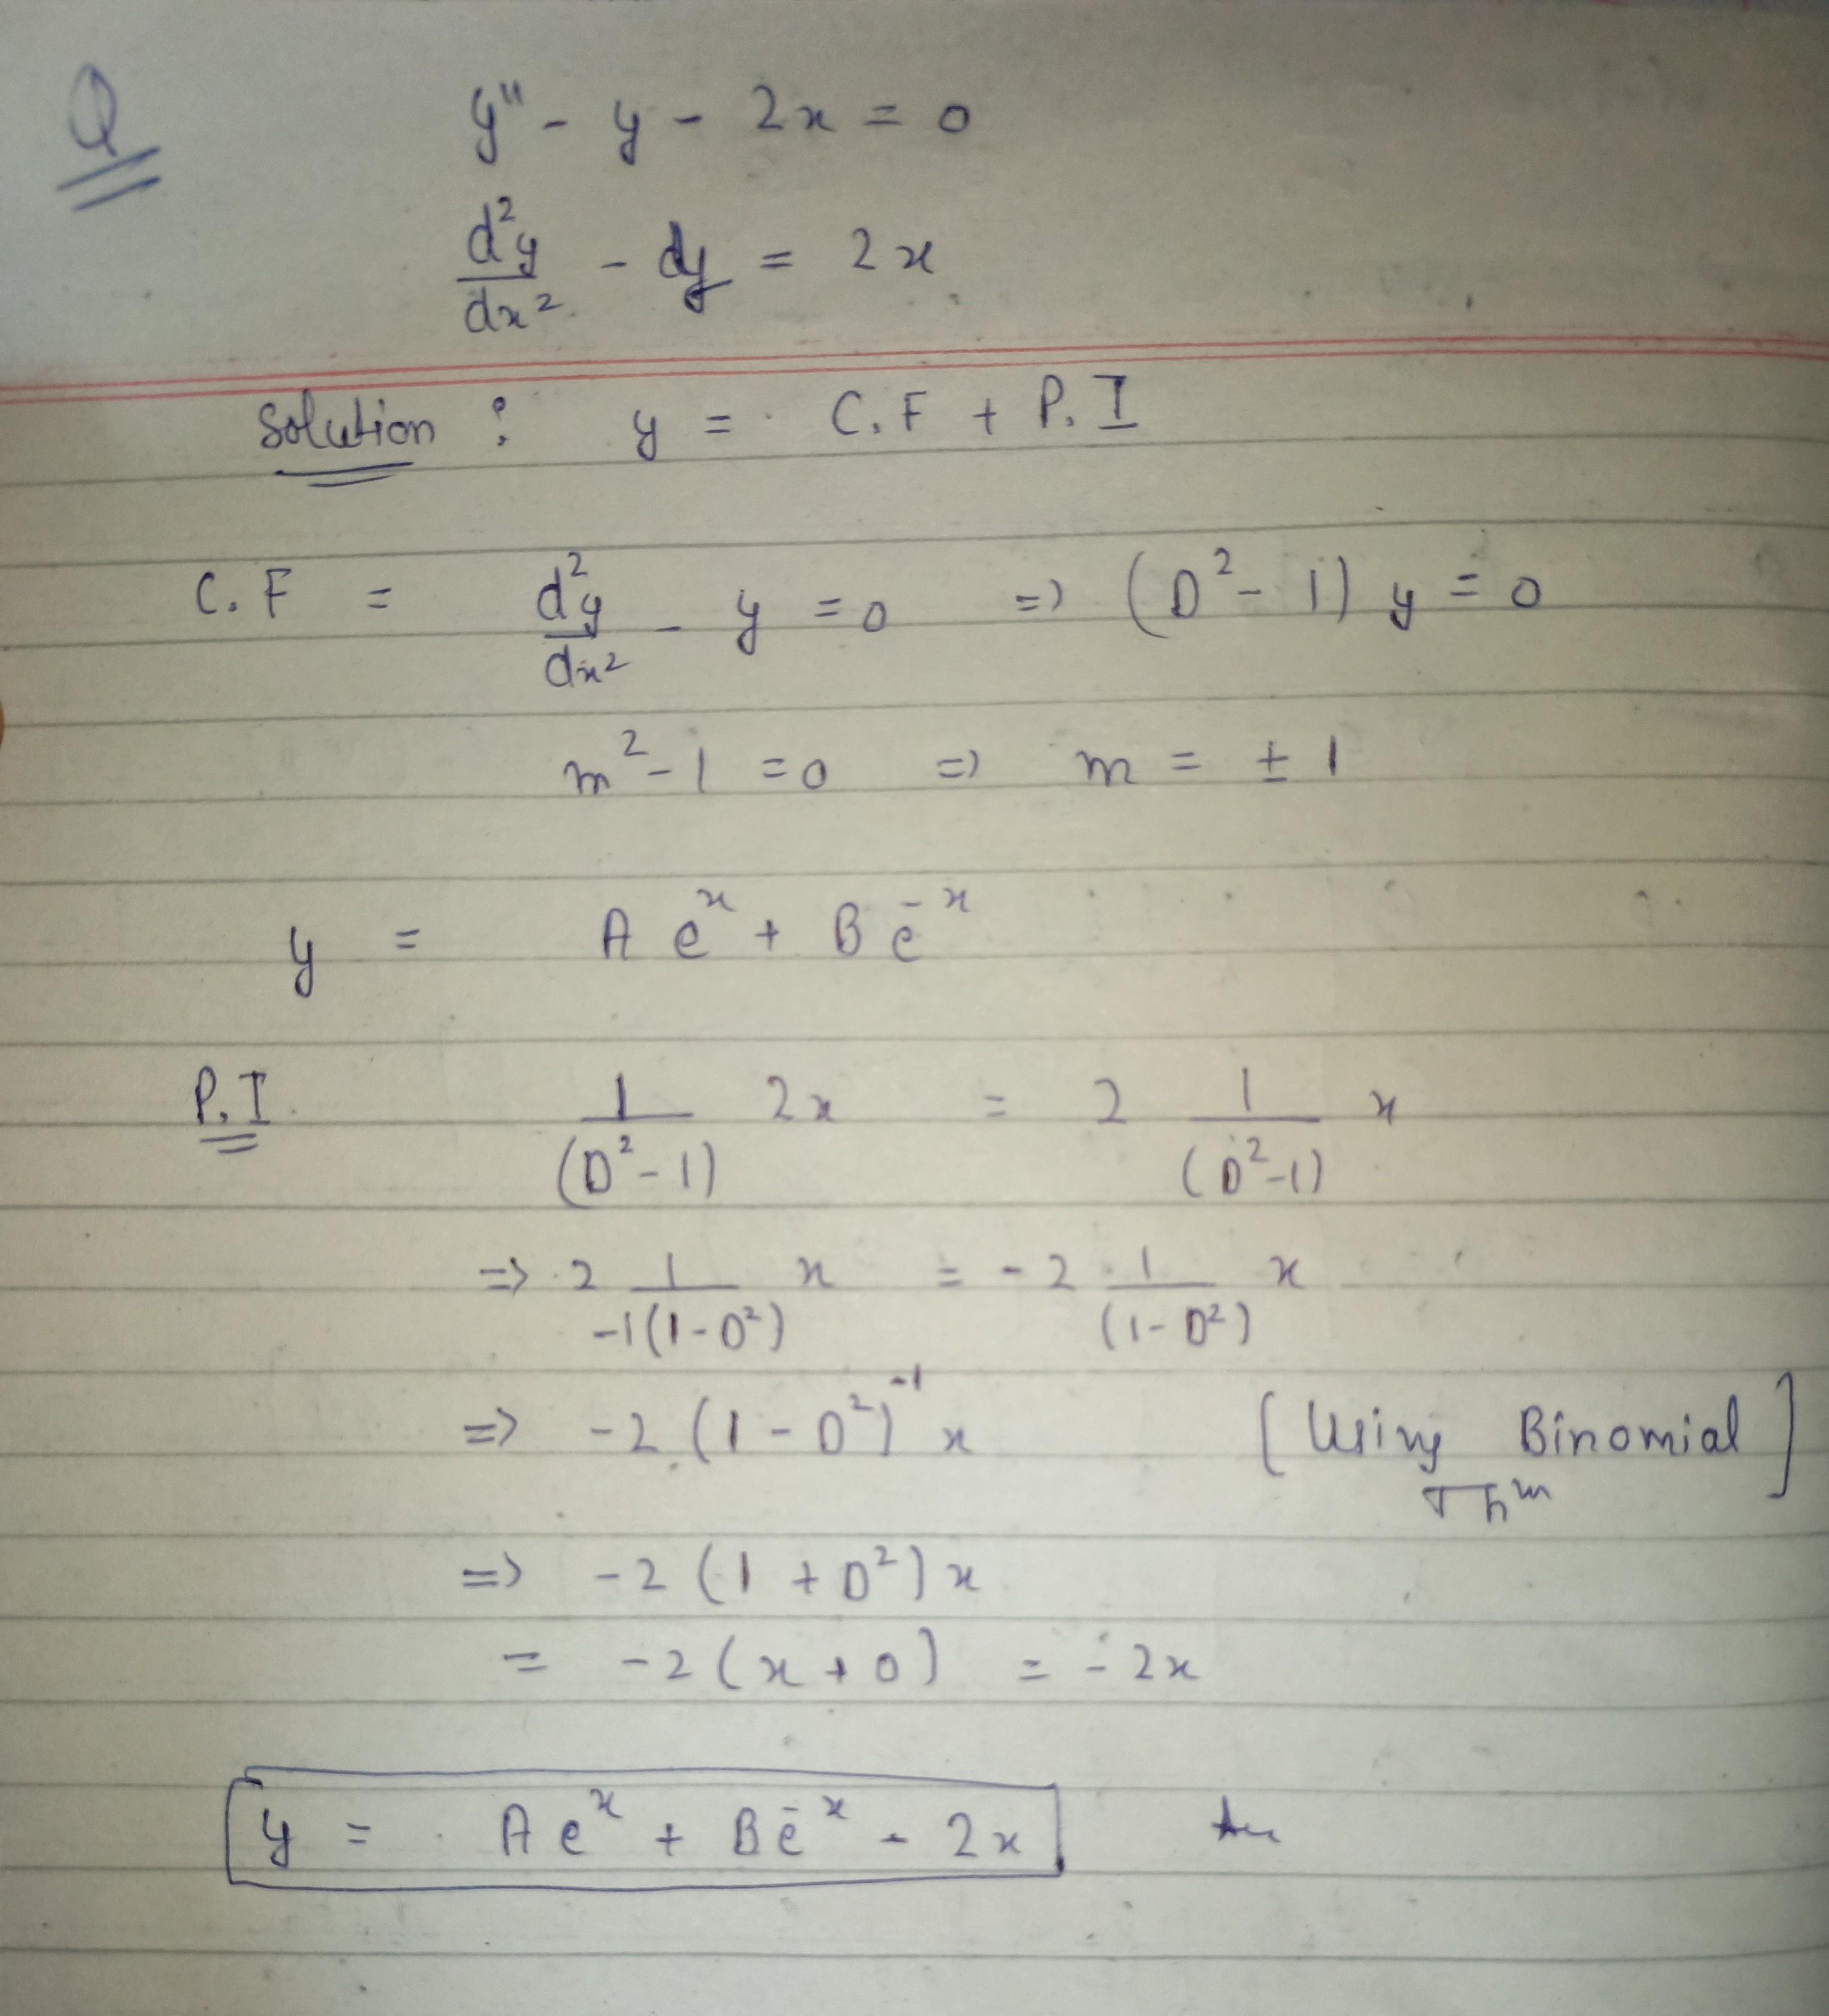 Q y'' - y - 2x = 0
d²y/dx² - dy = 2x
Solution : y = C.F + P.I
C.F = d²y/dx² - y = 0 => (D² - 1) y = 0
m² - 1 = 0 => m = ± 1
y = A e^x + B e^-x
P.I 1/(D² - 1) 2x = 2 1/(D² - 1) x
=> 2 1/-1(1 - D²) x = - 2 1/(1 - D²) x
=> - 2 (1 - D²)^-1 x [Using Binomial Th^m]
=> - 2 (1 + D²) x
= - 2 (x + 0) = - 2x
y = A e^x + B e^-x - 2x